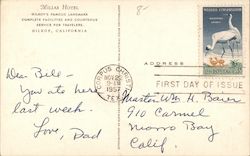 MILIAS HOTEL
GILROY'S FAMOUS LANDMARK
COMPLETE FACILITIES AND COURTEOUS
SERVICE FOR TRAVELERS.
GILROY, CALIFORNIA
8-
WILDLIFE CONSERVATION
ADDRESS
CORPUS CHRISTI
NOV 22
9 AM
1957
TEX.
FIRST DAY OF ISSUE
Dear Bill -
You ate here
last week.
Love, Dad
Master Wm H. Baier
910 Carmel
Morro Bay
Calif.